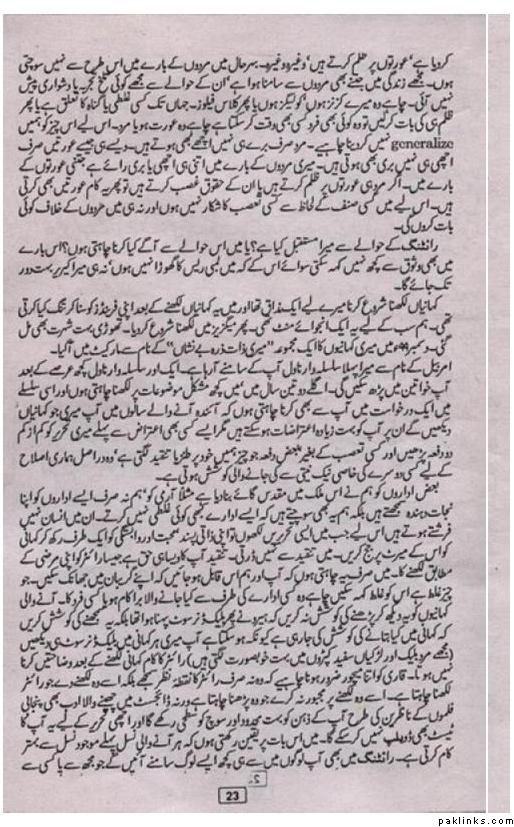 کر دیا ہے‘ عورتوں پر ظلم کرتے ہیں‘ وغیرہ وغیرہ۔ بہرحال میں مردوں کے بارے میں اس طرح سے نہیں سوچتی
ہوں۔ مجھے زندگی میں جتنے بھی مردوں سے سامنا ہوا ہے‘ ان کے حوالے سے مجھے کوئی تلخ تجربہ یا دشواری پیش
نہیں آئی۔ چاہے وہ میرے کزنز ہوں‘ کولیگز ہوں یا پھر کلاس فیلوز۔ جہاں تک کسی غلطی یا گناہ کا تعلق ہے یا پھر
ظلم ہی کی بات کر لیں تو وہ کوئی بھی فرد کسی بھی وقت کر سکتا ہے چاہے وہ عورت ہو یا مرد۔ اس لیے اس چیز کو ہمیں
generalize نہیں کر دینا چاہیے۔ مرد صرف برے ہی نہیں اچھے بھی ہوتے ہیں۔ ویسے ہی جیسے عورتیں صرف
اچھی ہی نہیں بری بھی ہوتی ہیں۔ میری مردوں کے بارے میں اتنی ہی اچھی یا بری رائے ہے جتنی عورتوں کے
بارے میں۔ اگر مرد ہی عورتوں پر ظلم کرتے ہیں یا ان کے حقوق غصب کرتے ہیں تو پھر یہ کام عورتیں بھی کرتی
ہیں۔ اس لیے میں کسی صنف کے لحاظ سے کسی تعصب کا شکار نہیں ہوں اور نہ ہی میں مردوں کے خلاف کوئی
بات کروں گی۔
رائٹنگ کے حوالے سے میرا مستقبل کیا ہے؟ یا میں اس حوالے سے آگے کیا کرنا چاہتی ہوں؟ اس بارے
میں بھی وثوق سے کچھ نہیں کہہ سکتی سوائے اس کے کہ میں لمبی ریس کا گھوڑا نہیں ہوں‘ نہ ہی میرا کیریر بہت دور
تک جائے گا۔
کہانیاں لکھنا شروع کرنا میرے لیے ایک مذاق تھا اور میں یہ کہانیاں لکھنے کے بعد اپنی فرینڈز کو سنا کر تنگ کیا کرتی
تھی۔ ہم سب کے لیے یہ ایک انجوائے منٹ تھی۔ پھر میگزینز میں لکھنا شروع کر دیا۔ تھوڑی بہت شہرت بھی مل
گئی۔ دسمبر ۹۹ء میں میری کہانیوں کا ایک مجموعہ ”میری ذات ذرہ بے نشاں“ کے نام سے مارکیٹ میں آ گیا۔
امر بیل کے نام سے میرا پہلا سلسلہ وار ناول آپ کے سامنے آ رہا ہے۔ ایک اور سلسلہ وار ناول کچھ عرصے کے بعد
آپ خواتین میں پڑھ سکیں گی۔ اگلے دو تین سال میں‘ میں کچھ مشکل موضوعات پر لکھنا چاہتی ہوں اور اسی سلسلے
میں ایک درخواست میں آپ سے بھی کرنا چاہتی ہوں کہ آئندہ آنے والے سالوں میں آپ میری جو کہانیاں
دیکھیں گے ان پر آپ کو بہت زیادہ اعتراضات ہو سکتے ہیں مگر ایسے کسی بھی اعتراض سے پہلے میری تحریر کو کم از کم
دو دفعہ پڑھیں اور کسی تعصب کے بغیر بعض دفعہ جو چیز ہمیں خود پر طنز یا تنقید لگتی ہے‘ وہ دراصل ہماری اصلاح
کے لیے کسی دوسرے کی خاصی نیک نیتی سے کی جانے والی کوشش ہوتی ہے۔
بعض اداروں کو ہم نے اس ملک میں مقدس گائے بنا دیا ہے مثلاً آرمی کو‘ ہم نہ صرف ایسے اداروں کو اپنا
نجات دہندہ سمجھتے ہیں بلکہ ہم یہ بھی سوچتے ہیں کہ ایسے ادارے کبھی کوئی غلطی نہیں کرتے۔ ان میں انسان نہیں
فرشتے ہوتے ہیں اس لیے جب میں ایسی تحریریں لکھوں تو اپنی ذاتی پسند محبت اور وابستگی کو ایک طرف رکھ کر کہانی
کو اس کے میرٹ پر جج کریں۔ میں تنقید سے نہیں ڈرتی۔ تنقید آپ کا ویسا ہی حق ہے جیسا رائٹر کو اپنی مرضی کے
مطابق لکھنے کا۔ میں صرف یہ چاہتی ہوں کہ آپ اور ہم اس قابل ہو جائیں کہ اپنے گریبان میں جھانک سکیں۔ جو
چیز غلط ہے اس کو غلط کہہ سکیں چاہے وہ کسی ادارے کی طرف سے کیا جانے والا برا کام ہو یا کسی فرد کا۔ آنے والی
کہانیوں کو یہ دیکھ کر پڑھنے کی کوشش نہ کریں کہ ہیرو نے پھر بلیک ڈنر سوٹ پہنا ہوا تھا بلکہ یہ سمجھنے کی کوشش کریں
کہ کہانی میں کیا بتانے کی کوشش کی جا رہی ہے کیونکہ ہو سکتا ہے آپ میری ہر کہانی میں بلیک ڈنر سوٹ ہی دیکھیں
(مجھے مرد بلیک اور لڑکیاں سفید کپڑوں میں بہت خوبصورت لگتی ہیں) رائٹر کا کام کہانی لکھنے کے بعد وضاحتیں کرنا
نہیں ہوتا۔ قاری کو اتنا میچور ضرور ہونا چاہیے کہ وہ نہ صرف رائٹر کا نقطہ نظر سمجھے بلکہ اسے وہ لکھنے دے جو رائٹر
لکھنا چاہتا ہے۔ اسے وہ لکھنے پر مجبور نہ کرے جو وہ پڑھنا چاہتا ہے ورنہ ڈائجسٹ میں چھپنے والا ادب بھی پنجابی
فلموں کے ناظرین کی طرح آپ کے ذہن کو بہت محدود اور سوچ کو سطحی رکھے گا اور اچھی تحریر کے لیے یہ آپ کا
ٹیسٹ بھی ڈویلپ نہیں کر سکے گا۔ میں اس بات پر یقین رکھتی ہوں کہ ہر آنے والی نسل پہلے موجود نسل سے بہتر
کام کرتی ہے۔ رائٹنگ میں بھی آپ لوگوں میں سے ہی کچھ ایسے لوگ سامنے آئیں گے جو مجھ سے یا کسی سے
23
paklinks.com